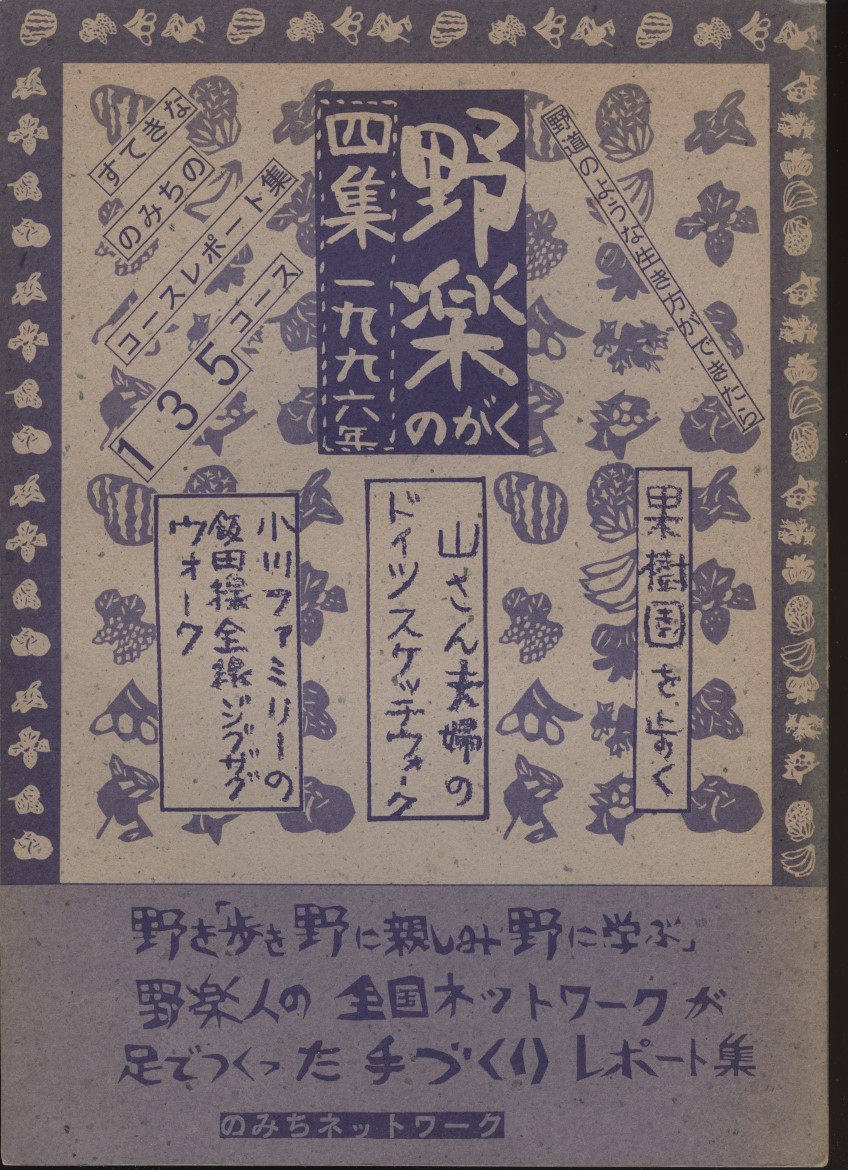 野楽
のがく
四集 一九九六年
野道のような生き方ができたら
すてきな
のみちの
コースレポート集
135コース
果樹園を歩く
山さん夫婦の
ドイツスケッチウォーク
小川ファミリーの
飯田線全線ジグザグ
ウォーク
野を「歩き野に親しみ野に学ぶ」
野楽人の全国ネットワークが
足でつくった手づくりレポート集
のみちネットワーク